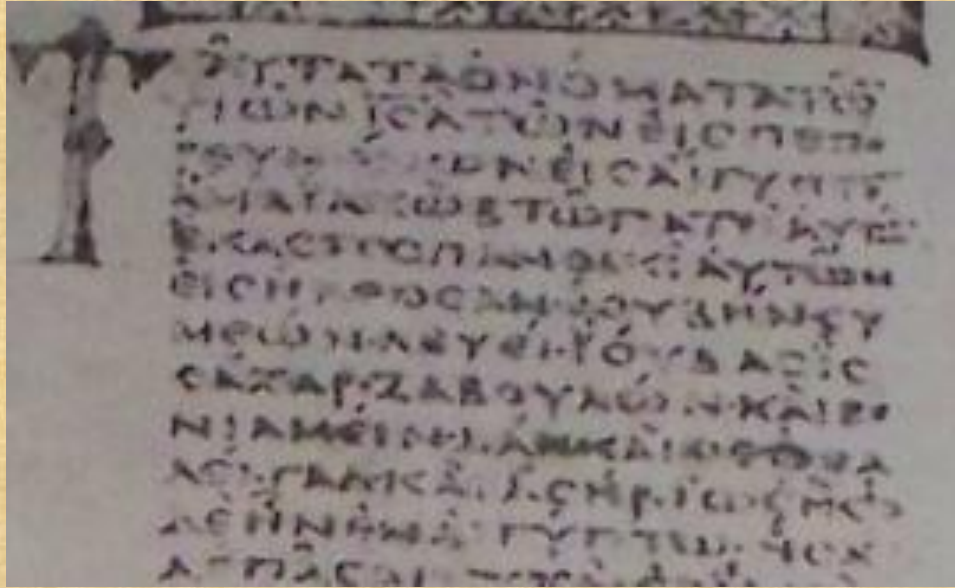 ΤΑΥΤΑ ΤΑ ΟΝΟΜΑΤΑ ΤΩ̅
ΥΙΩΝ ΙΣ̅Λ̅ ΤΩΝ ΕΙΣΠΕΠΟ
ΡΕΥΜΕΝΩΝ ΕΙΣ ΑΙΓΥΠΤΟ̅
ΑΜΑ ΙΑΚΩΒ ΤΩ ΠΑΤΡΙ ΑΥΤΩ̅
ΕΚΑΣΤΟΣ ΠΑΝΟΙΚΙ ΑΥΤΩΝ
ΕΙΣΗΛΘΟΣΑΝ·ΡΟΥΒΗΝ·ΣΥ
ΜΕΩΝ·ΛΕΥΕΙ·ΙΟΥΔΑΣ·ΙΣ
ΣΑΧΑΡ·ΖΑΒΟΥΛΩΝ·ΚΑΙ ΒΕ
ΝΙΑΜΕΙΝ·ΔΑΝ ΚΑΙ ΝΕΦΘΑ
ΛΕΙ·ΓΑΔ ΚΑΙ ΑΣΗΡ·ΙΩΣΗΦ
ΔΕ ΗΝ ΕΝ ΑΙΓΥΠΤΩ·ΗΣΑ